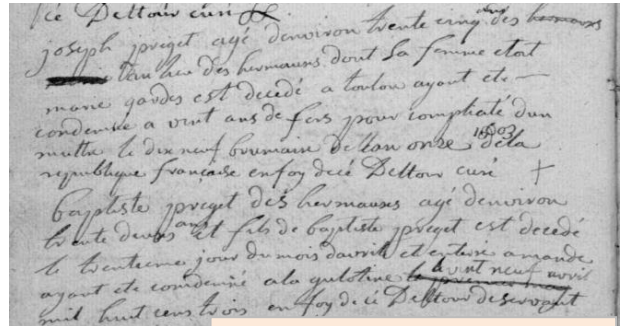 ce Deltour curé
joseph preget agé denviron trente cinq ans des
des hermauses dont la femme etoit
marie gardes est decedé a toulon ayant ete
condemné a vint ans de fers pour complicité dun
multre le dix neuf brumaire de lan onze 1803 de la
republique française en foy de cé Deltour curé +
baptiste preget des hermauses agé denviron
trente deux ans et fils de baptiste preget est decedé
le trentieme jour du mois davril et enterré a mande
ayant ete condemné a la gulotine le vint neuf avril
mil huit cens trois en foy de cé Deltour deservant